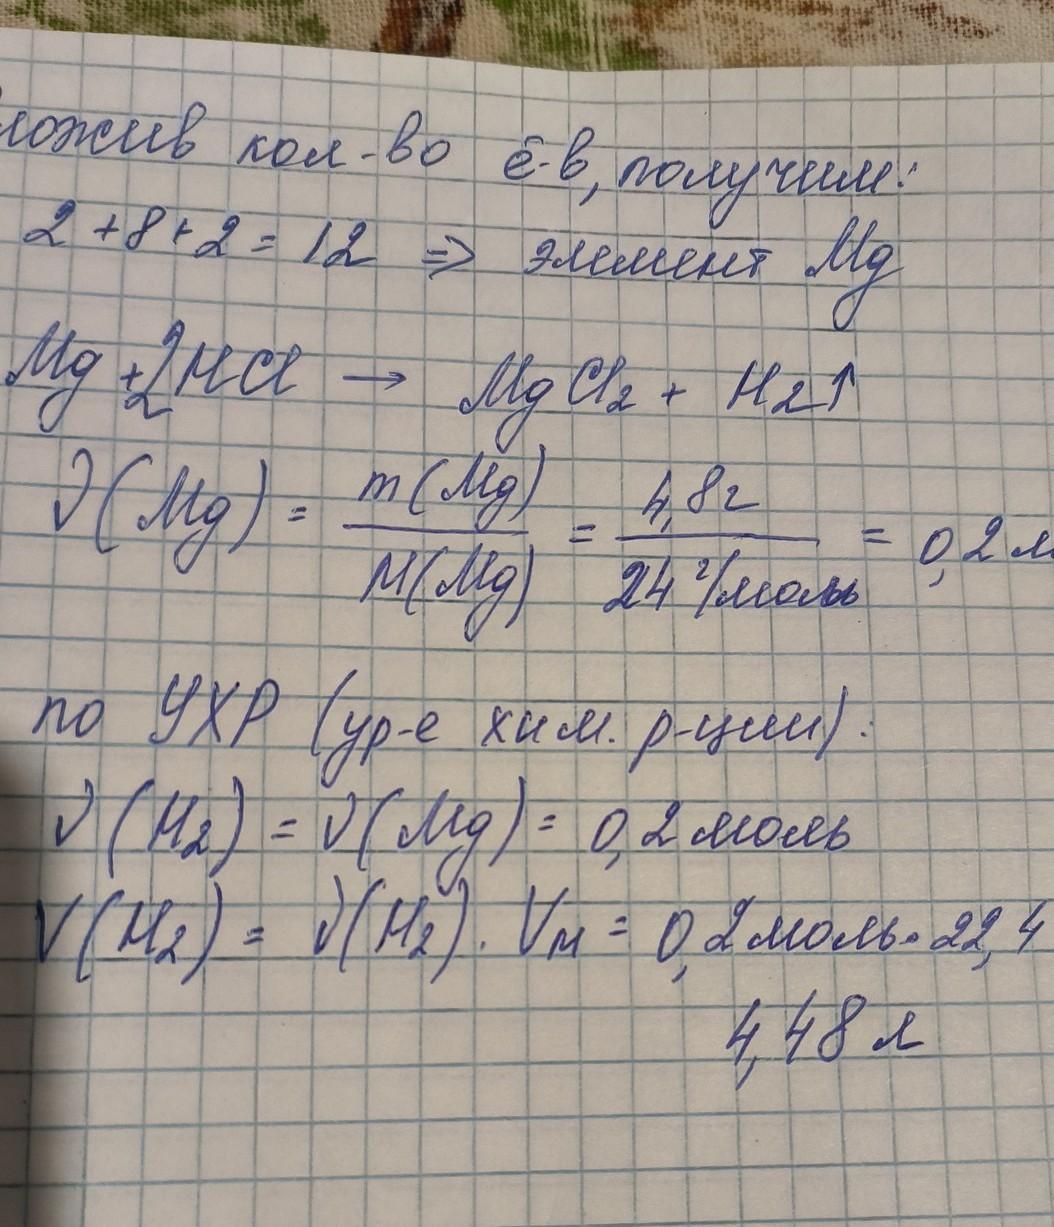 ложив кол-во ē-в, получим:
2 + 8 + 2 = 12 => элемент Mg
Mg + 2HCl → MgCl₂ + H₂↑
ν(Mg) = m(Mg) / M(Mg) = 4,8г / 24 г/моль = 0,2 м
по УХР (ур-е хим. р-ции):
ν(H₂) = ν(Mg) = 0,2 моль
V(H₂) = ν(H₂) · Vм = 0,2 моль · 22,4
4,48 л